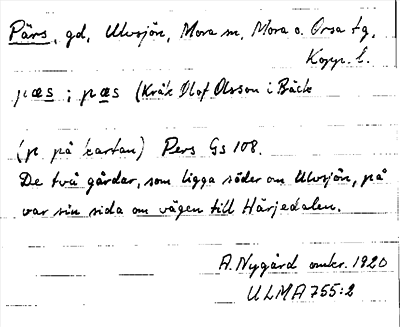 Pärs, gd, Ulvsjön, Mora sn, Mora o. Orsa tg,
Kopp. l.
pæs ; pæs (Kråk Olof Olsson i Bäck
(p. på kartan) Pers Gs 108.
De två gårdar, som ligga söder om Ulvsjön, på
var sin sida om vägen till Härjedalen.
A. Nygård omkr. 1920
ULMA 755:2